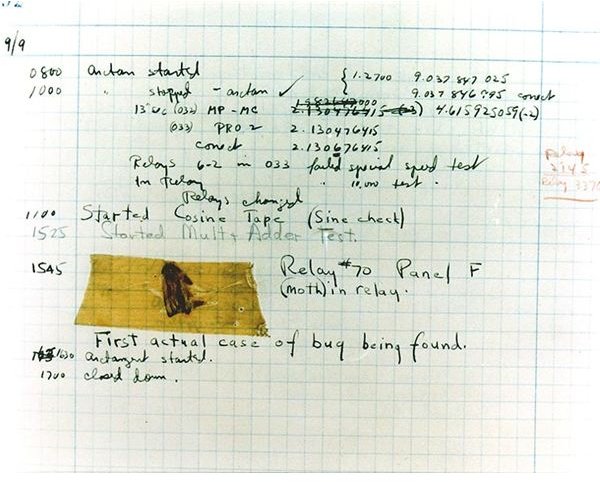 9/9
0800 arctan started
1000 " stopped - arctan ✓ { 1.2700 9.037 847 025
9.037 846 995 correct
13"uc (032) MP-MC 2.130476415 4.615925059(-2)
(033) PRO 2 2.130476415
correct 2.130676415
Relays 6-2 in 033 failed special speed test
In Relay " 10,000 test.
Relays changed
Relay
2145
Relay 3370
1100 Started Cosine Tape (Sine check)
1525 Started Mult+ Adder Test.
1545 Relay #70 Panel F
(Moth) in relay.
First actual case of bug being found.
1630 arctangent started.
1700 closed down.